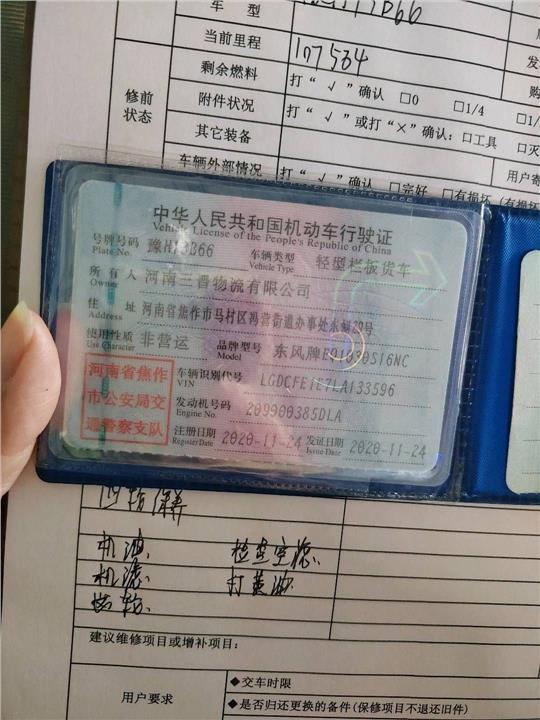 车 型
当前里程 107534
发
剩余燃料 打“√”确认 □0 □1/4
购
修前状态
附件状况 打“√”或打“×”确认：□工具 □灭
其它装备
用户寄
车辆外部情况 打“√”确认 □完好 □有损坏 (有损坏
中华人民共和国机动车行驶证
Vehicle License of the People's Republic of China
号牌号码 车辆类型 轻型栏板货车
Plate No. Vehicle Type
所有人 河南三晋物流有限公司
Owner
住 址 河南省焦作市马村区冯营街道办事处东
Address
使用性质 非营运 品牌型号 东风牌
Use Character Model
河南省焦作
市公安局交
通警察支队
车辆识别代号 LGDCFE1E7LA133596
VIN
发动机号码 209900385DLA
Engine No.
注册日期 2020-11-24 发证日期 2020-11-24
Register Date Issue Date
机油 检查空滤
机滤 打黄油
建议维修项目或增补项目：
用户要求
◆交车时限
◆是否归还更换的备件(保修项目不退还旧件)